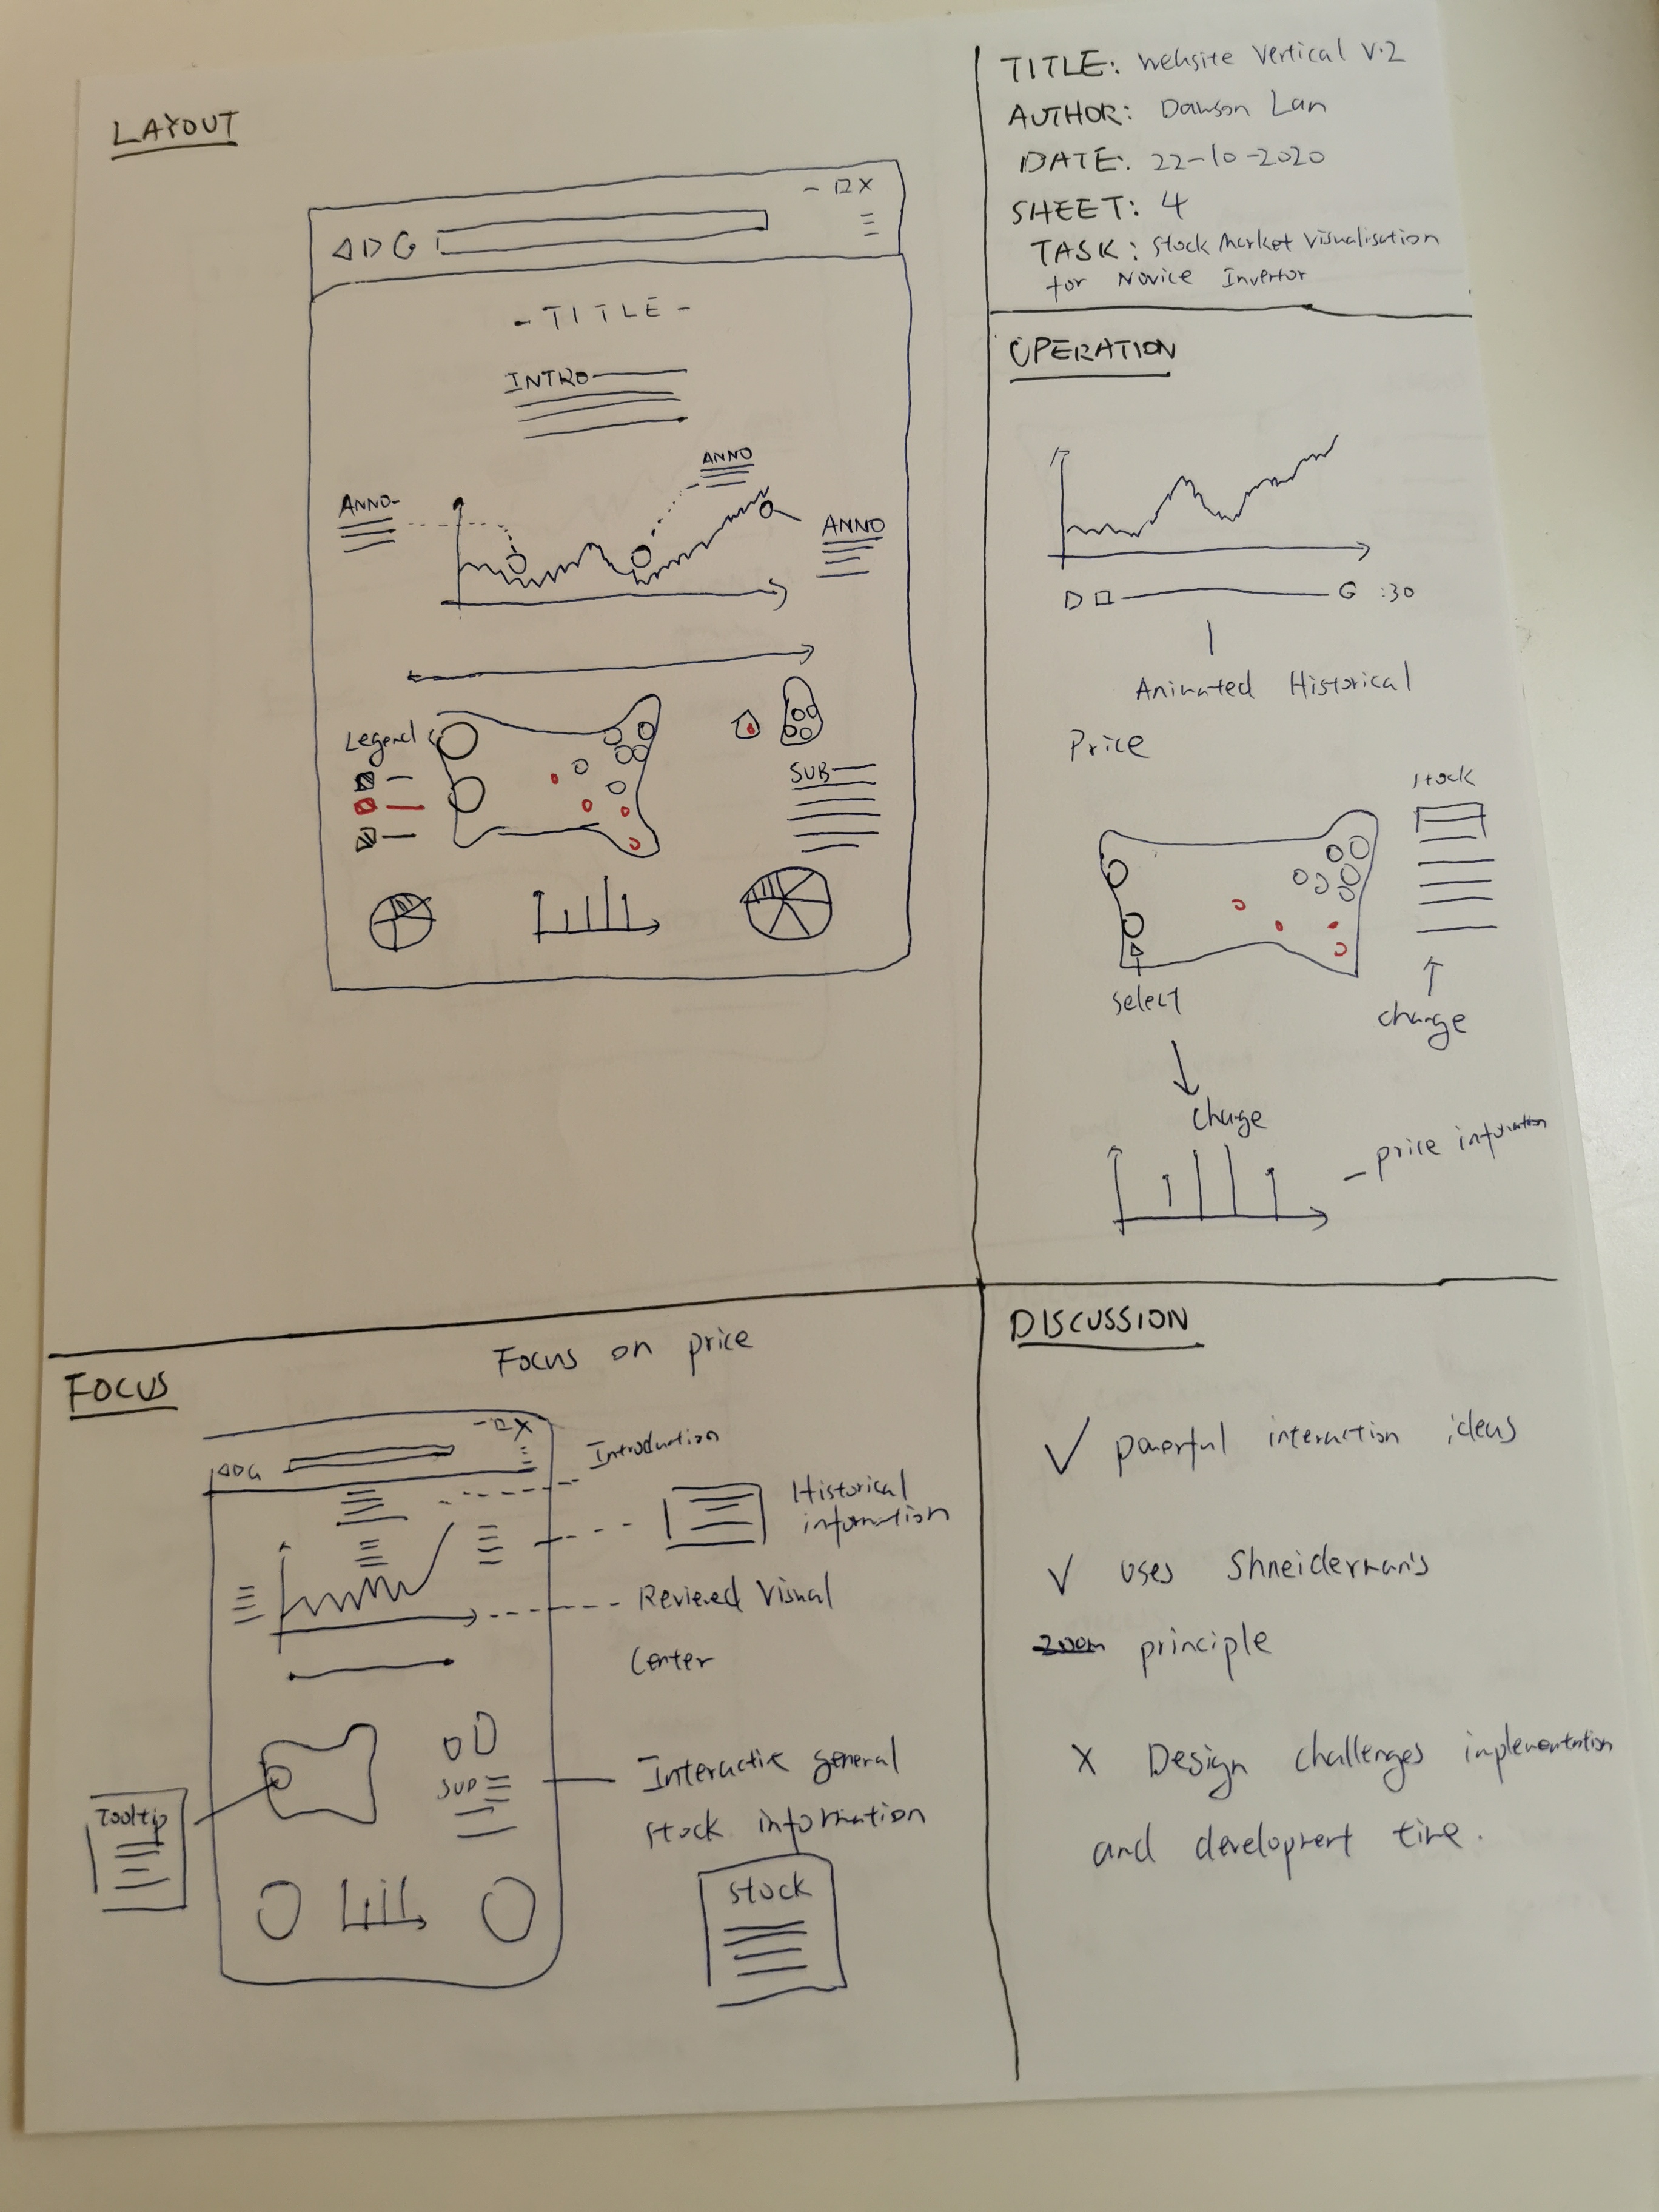 LAYOUT
- TITLE -
INTRO
ANNO
ANNO
ANNO
Legend
SUB
TITLE: Website Vertical V.2
AUTHOR: Dawson Lan
DATE: 22-10-2020
SHEET: 4
TASK: Stock Market Visualisation
for Novice Invertor
OPERATION
G :30
Animated Historical
Price
Stock
select
change
Change
- price information
FOCUS
Focus on price
Introduction
Historical
information
Reviewed Visual
Center
Tooltip
SUB
Interactive general
stock information
Stock
DISCUSSION
✓ powerful interaction ideas
✓ uses Shneiderman's
zoom principle
X Design challenges implementation
and development time.